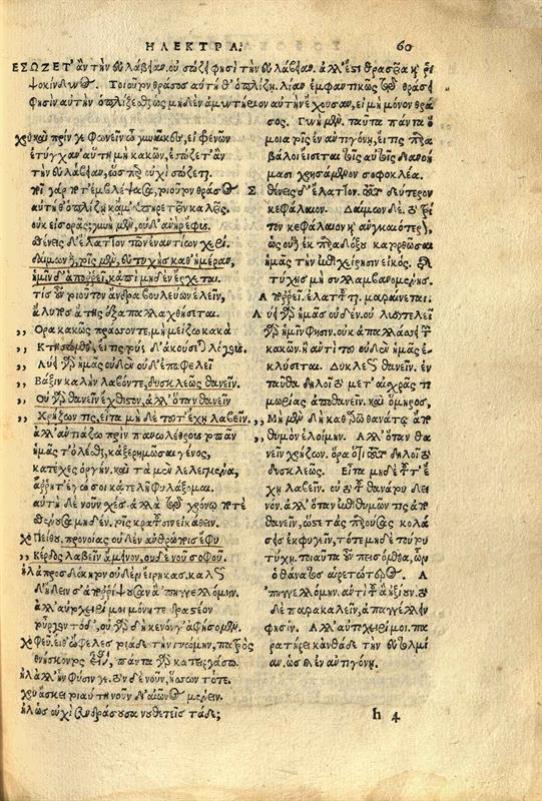 ΗΛΕΚΤΡΑ. 60
ΕΣΩΖΕΤ' ἂν τὴν εὐλάβειαν. οὐ σώζει φησὶ τὴν εὐλάβειαν. ἀλλ' ἔστι θρασεῖα καὶ ῥι
ψοκίνδυνος. Τοιοῦτον θράσος αὐτή θ' ὁπλίζῃ. λίαν ἐμφαντικῶς τὸ θράσει
φησὶν αὐτὴν ὁπλίζεσθαι ὡς μηδὲν ἀμυντήριον αὐτὴν ἔχουσαν, εἰ μὴ μόνον θρά
σος. Γυνὴ μὲν. ταῦτα πάντα ὅ
χρ καὶ πρίν γε φωνεῖν ὦ γυναῖκες, εἰ φρενῶν
ἐτύγχαν' αὕτη μὴ κακῶν, ἐσώζετ' ἂν
τὴν εὐλάβειαν, ὥσπερ οὐχὶ σώζεται.
ποῖ γάρ ποτ' ἐμβλέψασα, τοιοῦτον θράσος
αὐτή θ' ὁπλίζῃ κἄμ' ὑπηρετεῖν καλεῖς.
οὐκ εἰσορᾷς; γυνὴ μὲν, οὐδ' ἀνὴρ ἔφυς.
σθένεις δ' ἔλαττον τῶν ἐναντίων χερί.
δαίμων δὲ, τοῖς μὲν, εὐτυχὴς καθ' ἡμέραν,
ἡμῖν δ' ἀπορρεῖ, κἀπὶ μηδὲν ἔρχεται.
τίς οὖν τοιοῦτον ἄνδρα βουλεύων ἑλεῖν,
ἄλυπος ἄτης ἐξαπαλλαχθήσεται.
,, Ορα κακῶς πράσσοντε, μὴ μείζω κακὰ
,, Κτησώμεθ', εἴ τις τούς δ' ἀκούσεται λόγους.
,, Λύει γὰρ ἡμᾶς οὐδὲν οὐδ' ἐπωφελεῖ
,, Βάξιν καλὴν λαβόντε, δυσκλεῶς θανεῖν.
,, Οὐ γὰρ θανεῖν ἔχθιστον, ἀλλ' ὅταν θανεῖν
,, Χρῄζων τις, εἶτα μηδὲ τοῦτ' ἔχῃ λαβεῖν.
ἀλλ' ἀντιάζω πρὶν πανωλέθρους τὸ πᾶν
ἡμᾶς τ' ὀλέσθαι, κἀξερημῶσαι γένος,
κατέχες ὀργήν. καὶ τὰ μὲν λελεγμένα,
ἄρρητ' ἐγώ σοι κἀτελῆ φυλάξομαι.
αὐτὴ δὲ νοῦν χὲς ἀλλὰ τῷ χρόνῳ ποτέ
σθένουσα μηδὲν, τοῖς κρατοῦσιν εἰκάθειν.
χο Πείθου, προνοίας οὐδὲν ἀνθρώποις ἔφυ
,, Κέρδος λαβεῖν ἄμεινον, οὐδὲ νοῦ σοφοῦ.
ηλ ἀπροσδόκητον οὐδὲν εἴρηκας. καλῶς
δ' ᾔδειν σ' ἀπορρίψουσαν ἃ 'πηγγελλόμην.
ἀλλ' αὐτόχειρί μοι μόνῃ τε δραστέον
τοὖργον τόδ', οὐ γὰρ δὴ κενόν γ' ἀφήσομεν.
χρ Φεῦ, εἴθ' ὤφελες τοιάδε τὴν γνώμην, πατρὸς
θνῄσκοντος εἶναι, πάντα γὰρ κατειργάσω.
ηλ ἀλλ' ἦν φύσιν γε. τὸν δὲ νοῦν, ἥσσων τότε.
χρ ἄσκει τοιαύτη νοῦν δι' αἰῶνος μένειν.
ηλ ὡς οὐχὶ ξυνδράσουσα νουθετεῖς τάδε;
μοια τοῖς ἐν ἀντιγόνῃ, εἴ τις παρα
βάλοι εἴσεται τοῖς αὐτοῖς διανοή
μασι χρησάμενον σοφοκλέα.
Σ θένεις δ' ἔλαττον. τοῦτο δεύτερον
κεφάλαιον. Δαίμων δὲ. τὸ τρί
τον κεφάλαιον καὶ ἀναγκαιότερον),
ὡς οὐκ ἐκ παραδόξου καταρθῶσαι
ἡμᾶς τὴν ἐπιχείρησιν εἰκός. τῆς
τύχης μὴ συλλαμβανομένης.
Α πορρεῖ. ἐλαττοῦται. μαραίνεται.
Λ ύει γὰρ ἡμᾶς οὐδέν. οὐ λυσιτελεῖ
γὰρ ἡμῖν φησιν. οὐκ ἀπαλλάσσει
κακῶν. ἢ αὐτὶ τοῦ οὐδὲν ἡμᾶς ἐ-
κλύσεται. Δυσκλεῶς θανεῖν. ἐν
ταῦθα δηλοῖ τὸ μετ' αἰσχρᾶς τι
μωρίας ἀποθανεῖν. καὶ ὅμηρος,
,, Μὴ μὲν δὴ καθαρῷ θανάτῳ ἀπὸ
,, θυμὸν ἑλοίμην. Αλλ' ὅταν θα
νεῖν χρῄζων. ὅρα ὅτι τοῦτο δηλοῖ τὸ
δυσκλεῶς. Εἶτα μηδὲ τοῦτ' ἔ
χῃ λαβεῖν. οὐ τὸ θανεῖν δει
νόν. ἀλλ' ὅταν ἐπιθυμῶν τις ἀπο
θανεῖν, ὥστε τὰς παρούσας κολά
σεις ἐκφυγεῖν, τότε μηδὲ τούτου
τύχῃ. τοιαῦτα οὖν πεισόμεθα, ὧν
ὁ θάνατος αἱρετώτερος. Α
'πηγγελλόμην. αὐτὶ τοῦ ἠξίουν. τὸ
δὲ παρακαλεῖν, ἀπαγγέλλειν
φησίν. Αλλ' αὐτόχειρί μοι. πα
ρατήρει κἀνθάδε τὴν εὐτολμί
αν. ὡς ἐν ἀντιγόνῃ.
h 4